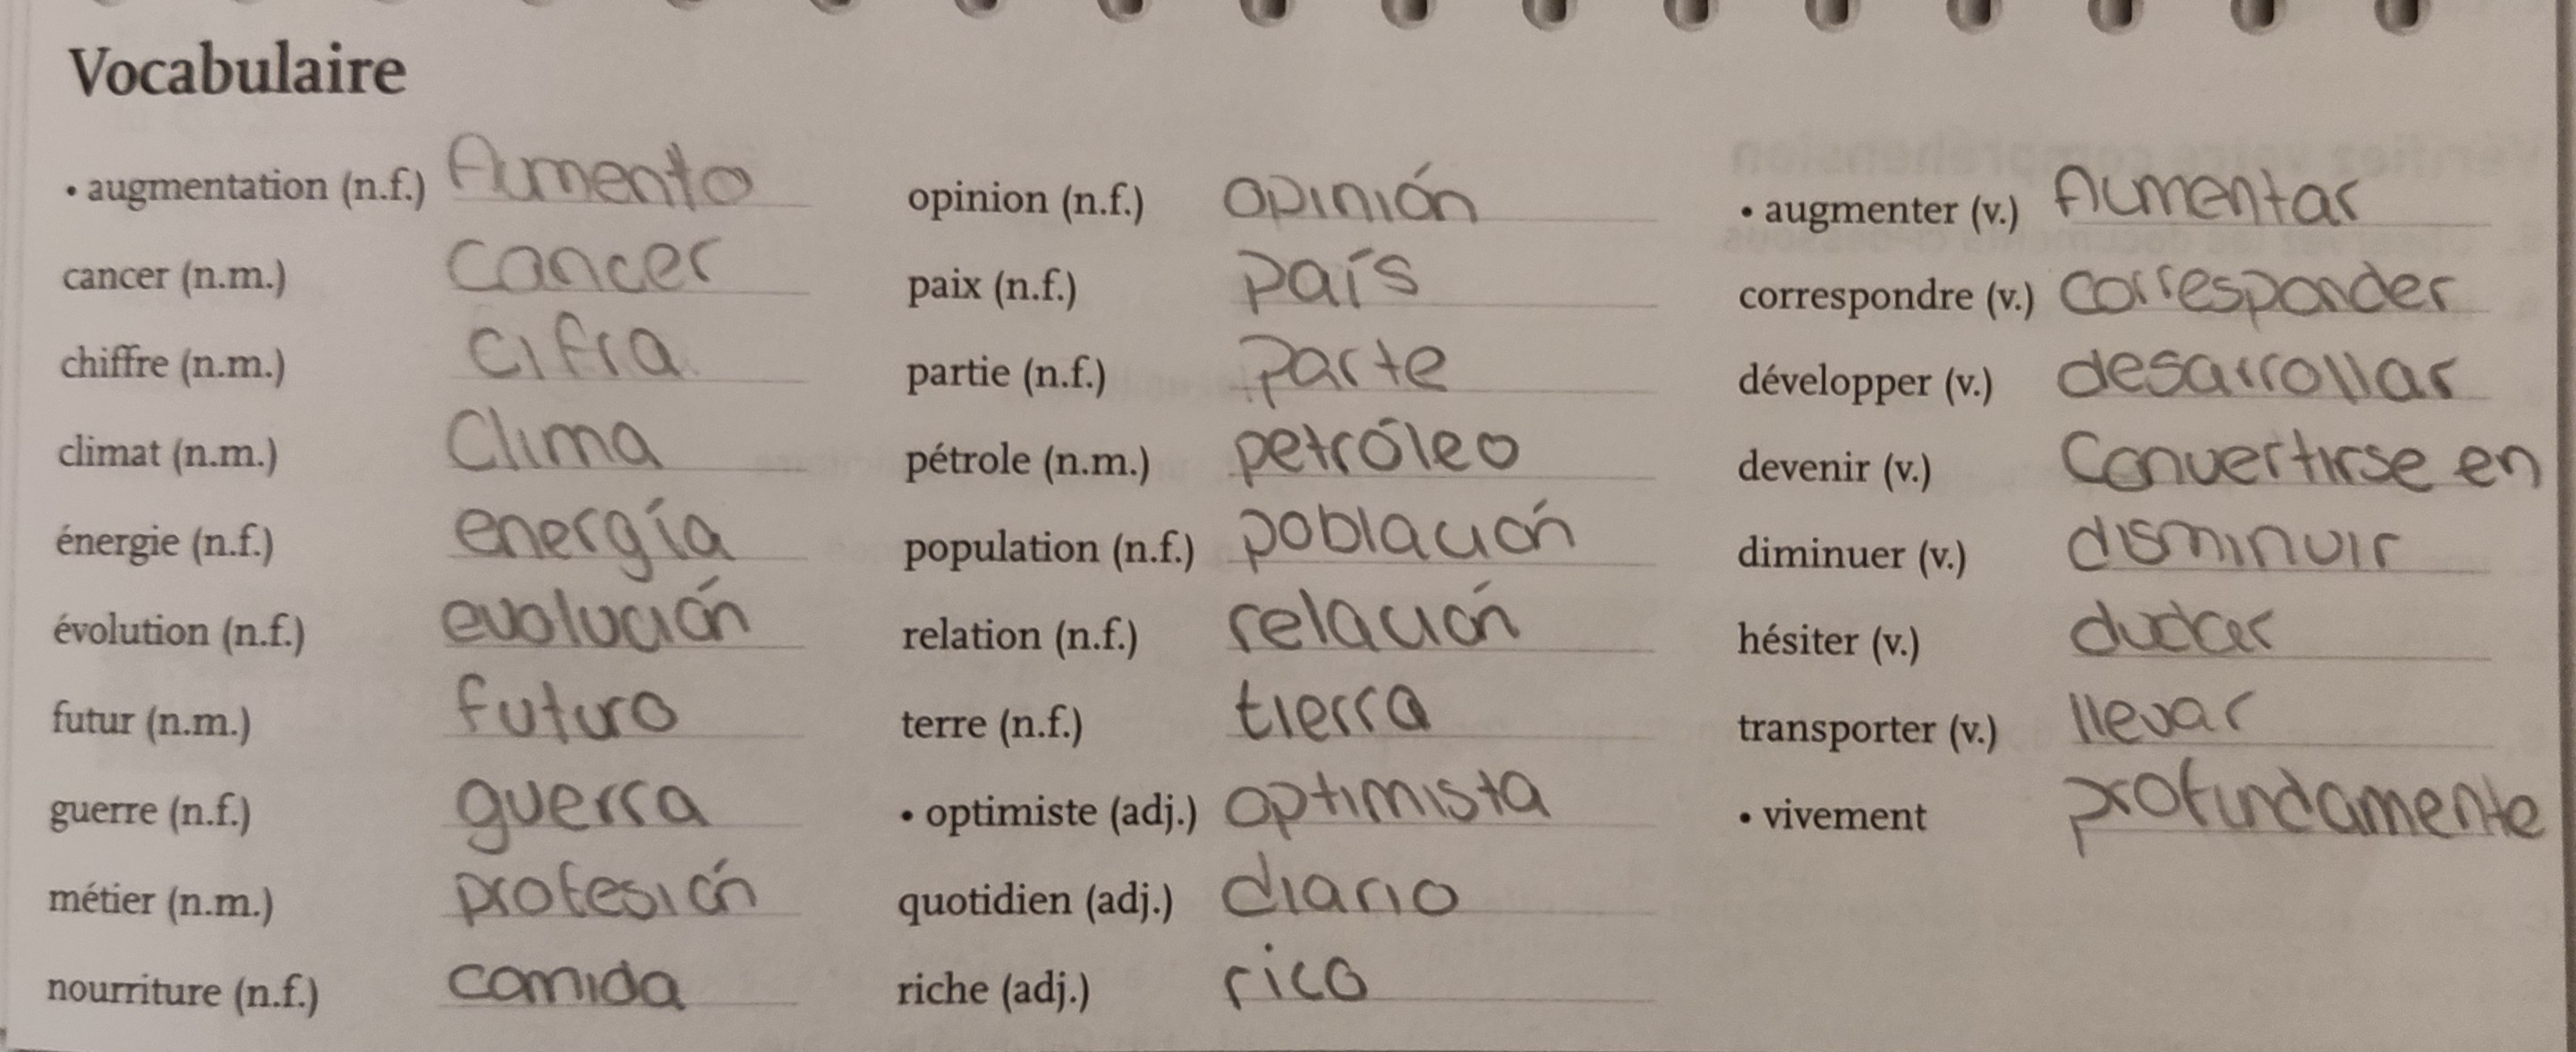 Vocabulaire
• augmentation (n.f.) Aumento
cancer (n.m.) cancer
chiffre (n.m.) cifra
climat (n.m.) Clima
énergie (n.f.) energía
évolution (n.f.) evolución
futur (n.m.) futuro
guerre (n.f.) guerra
métier (n.m.) profesión
nourriture (n.f.) comida
opinion (n.f.) opinión
paix (n.f.) país
partie (n.f.) parte
pétrole (n.m.) petróleo
population (n.f.) población
relation (n.f.) relación
terre (n.f.) tierra
• optimiste (adj.) optimista
quotidien (adj.) diario
riche (adj.) rico
• augmenter (v.) Aumentar
correspondre (v.) corresponder
développer (v.) desarrollar
devenir (v.) Convertirse en
diminuer (v.) disminuir
hésiter (v.) dudar
transporter (v.) llevar
• vivement profundamente